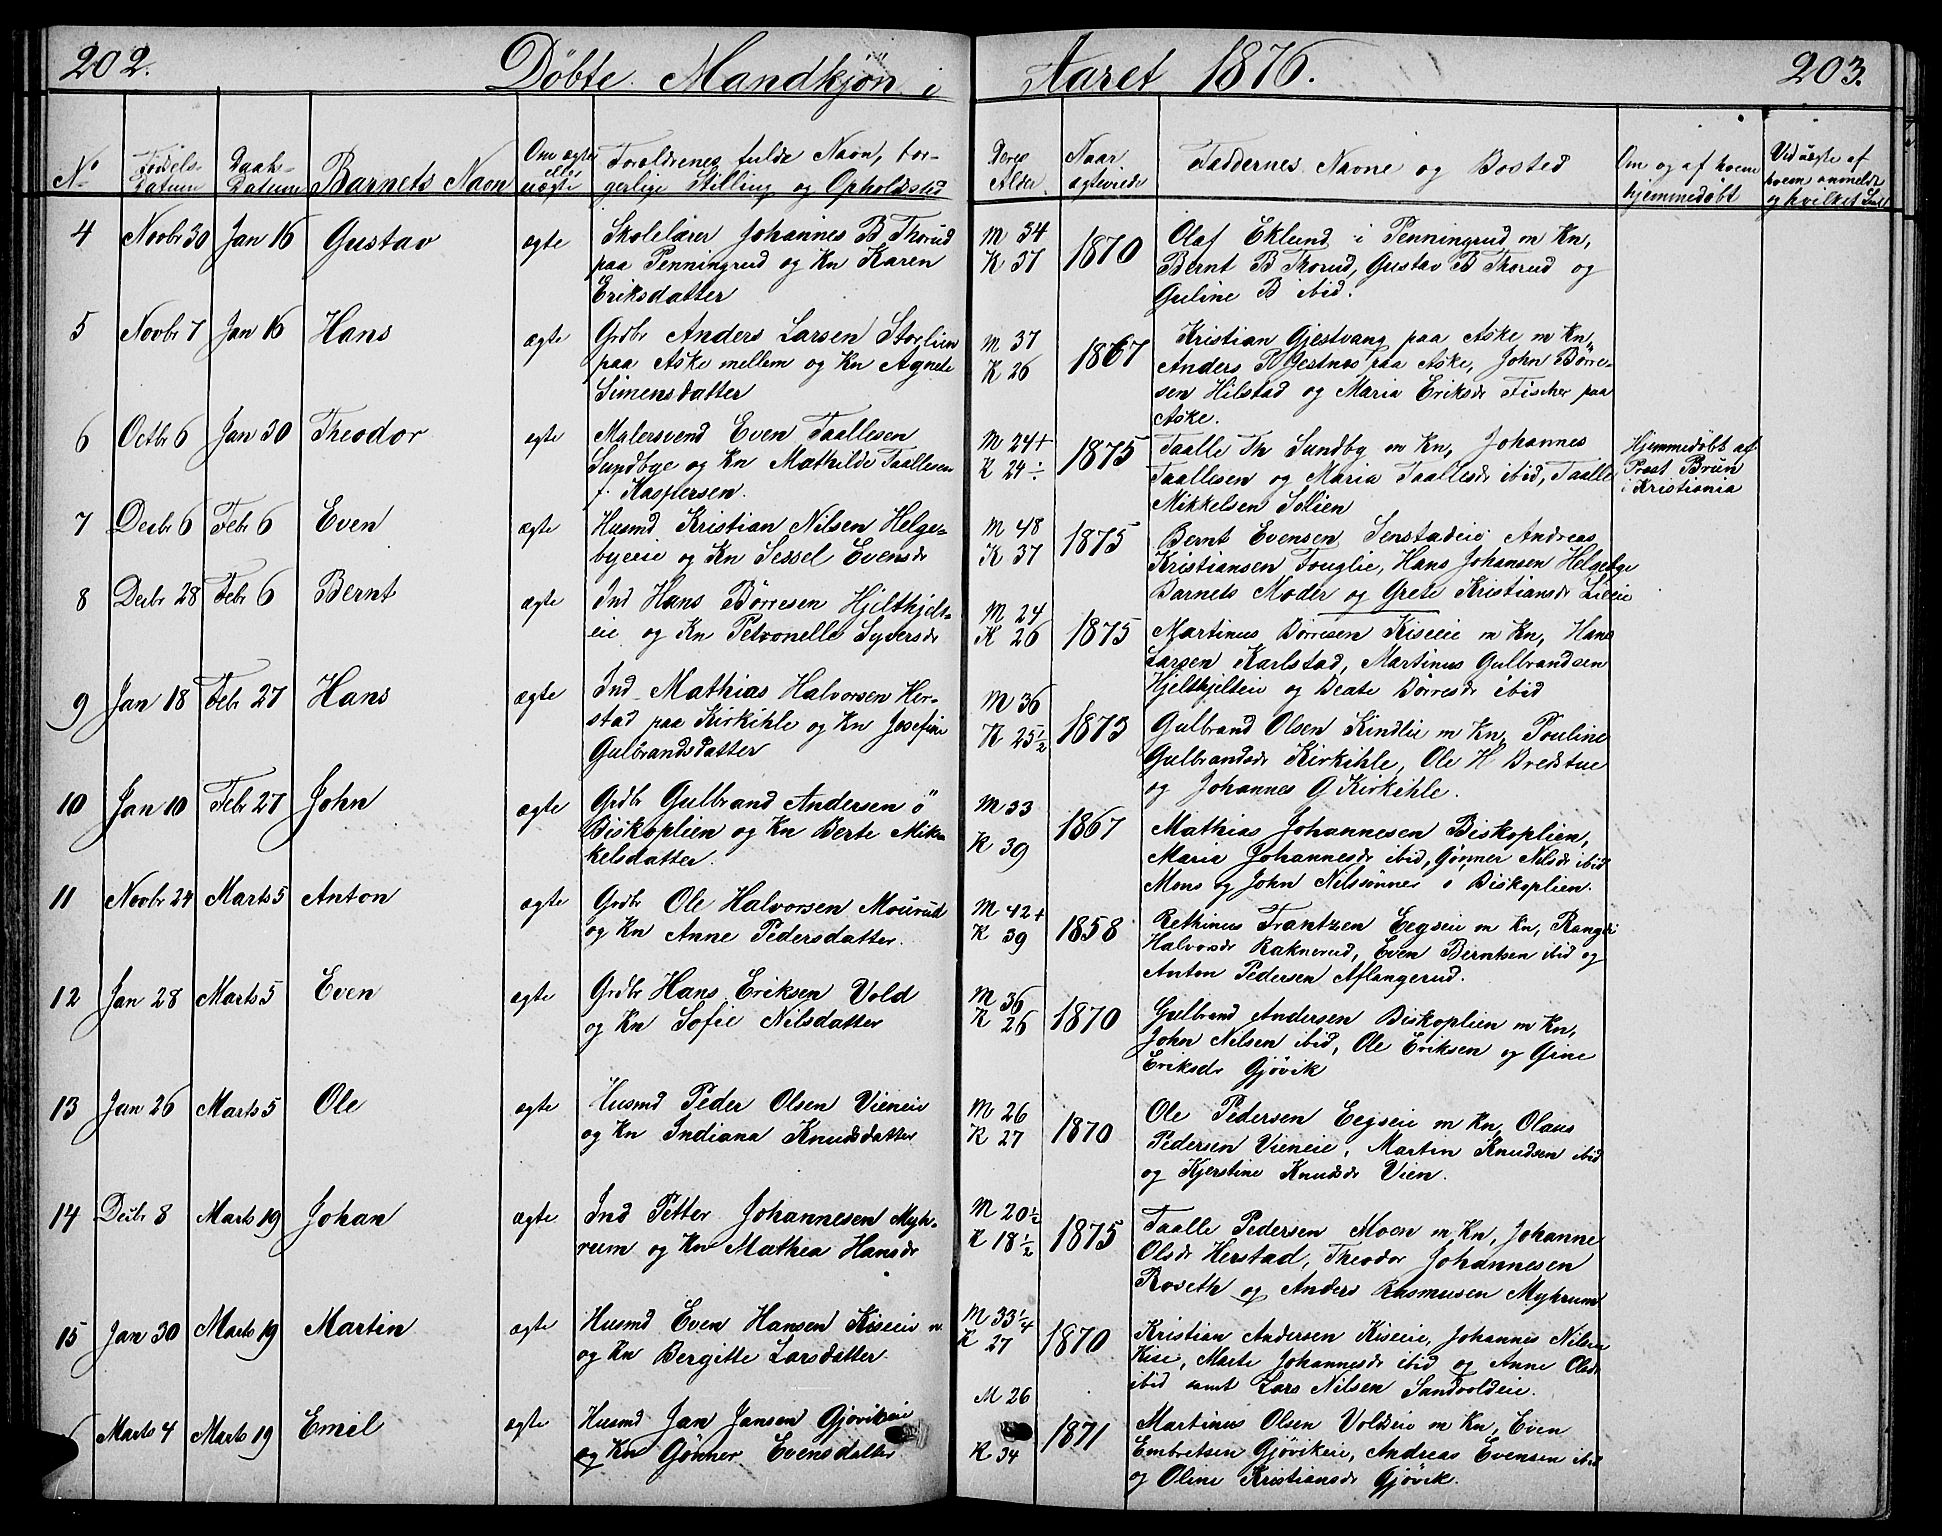 202.
Döbte Mandkjön i
Aaret 1876.
203.
No
Födsels-
Datum
Daab-
Datum
Barnets Navn
Om ægte
eller
uægte
Forældrenes fulde Navn, bor-
gerlige Stilling og Opholdssted
Deres
Alder.
Naar
ægteviede
Faddernes Navne og Bosted
Om og af hvem
hjemmedöbt
Ved uægte af
hvem anmeldt
og hvilket
4 Novbr 30 Jan 16 Gustav ægte
Skolelærer Johannes B Thorud
paa Penningrud og Kn Karen
Eriksdatter
M 34
K 37
1870
Olaf Eklund i Penningrud m Kn,
Bernt B Thorud, Gustav B Thorud og
Guline B ibid.
5 Novbr 7 Jan 16 Hans ægte
Grdbr Anders Larsen Storlien
paa Aske mellem og Kn Agnete
Simensdatter
M 37
K 26
1867
Kristian Gjestvang paa Aske m Kn,
Anders P Gestnæs paa Aske, John Börre-
sen Hilstad og Maria Eriksdr Fischer paa
Aske.
6 Octbr 6 Jan 30 Theodor ægte
Malersvend Even Taallesen
Sundbye og Kn Mathilde Taallesen
f. Kaspersen.
M 24+
K 24 ÷
1875
Taalle Th Sundby m Kn, Johannes
Taallesen og Maria Taallesdr ibid, Taalle
Mikkelsen Sölien
Hjemmedöbt af
Prost Brun
i Kristiania
7 Decbr 6 Febr 6 Even ægte
Husmd Kristian Nilsen Helge-
byeeie og Kn Sessel Evensdr
M 48
K 37
1875
Bernt Evensen Senstadeie Andreas
Kristiansen Fouglie, Hans Johansen Helgebye
Barnets Moder og Grete Kristiansdr Lieeie
8 Decbr 28 Febr 6 Bernt ægte
Ind Hans Börresen Hjelthjelt-
eie og Kn Petronelle Syversdr
M 24
K 26
1875
Martinus Börresen Kiseeie m Kn, Hans
Larsen Karlstad, Martinus Gulbrandsen
Hjelthjelteie og Beate Börresdr ibid
9 Jan 18 Febr 27 Hans ægte
Ind Mathias Halvorsen Her-
stad paa Kirkihle og Kn Josefine
Gulbrandsdatter
M 36
K 25½
1873
Gulbrand Olsen Kindlie m Kn, Pouline
Gulbrandsdr Kirkihle, Ole H Bredstue
og Johannes G Kirkihle.
10 Jan 10 Febr 27 John ægte
Grdbr Gulbrand Andersen ö
Biskoplien og Kn Berte Mik-
kelsdatter.
M 33
K 39
1867
Mathias Johannesen Biskoplien,
Maria Johannesdr ibid, Gönner Nilsdr ibid
Mons og John Nilssönner ö Biskoplien.
11 Novbr 24 Marts 5 Anton ægte
Grdbr Ole Halvorsen Mourud
og Kn Anne Pedersdatter.
M 42+
K 39
1858
Rethinus Frantzen Eegseie m Kn, Rangdi
Halvorsdr Raknerud, Even Berntsen ibid og
Anton Pedersen Aflangerud.
12 Jan 28 Marts 5 Even ægte
Grdbr Hans Eriksen Vold
og Kn Sofie Nilsdatter
M 36
K 26
1870
Gulbrand Andersen Biskoplien m Kn,
John Nilsen ibid, Ole Eriksen og Gine
Eriksdr Gjövik
13 Jan 26 Marts 5 Ole ægte
Husmd Peder Olsen Vieneie
og Kn Indiana Knudsdatter
M 26
K 27
1870
Ole Pedersen Eegseie m Kn, Olaus
Pedersen Vieneie, Martin Knudsen ibid
og Kjerstine Knudsdr Vien.
14 Decbr 8 Marts 19 Johan ægte
Ind Petter Johannesen Myh-
rum og Kn Mathea Hansdr
M 20½
K 18½
1875
Taalle Pedersen Moen m Kn, Johanne
Olsdr Herstad, Theodor Johannesen
Roseth og Anders Rasmusen Myhrum
15 Jan 30 Marts 19 Martin ægte
Husmd Even Hansen Kiseeie n
og Kn Bergitte Larsdatter
M 33¼
K 27
1870
Kristian Andersen Kiseeie, Johannes Nilsen
Kise, Marte Johannesdr ibid og Anne Olsdr
ibid samt Lars Nilsen Sandvoldeie.
Marts 4 Marts 19 Emil ægte
Husmd Jan Jansen Gjövikeie
og Kn Gönner Evensdatter
M 26
K 34
1871
Martinus Olsen Voldseie m Kn, Even
Embretsen Gjövikeie, Andreas Evensen ibid
og Oline Kristiansdr Gjövik.